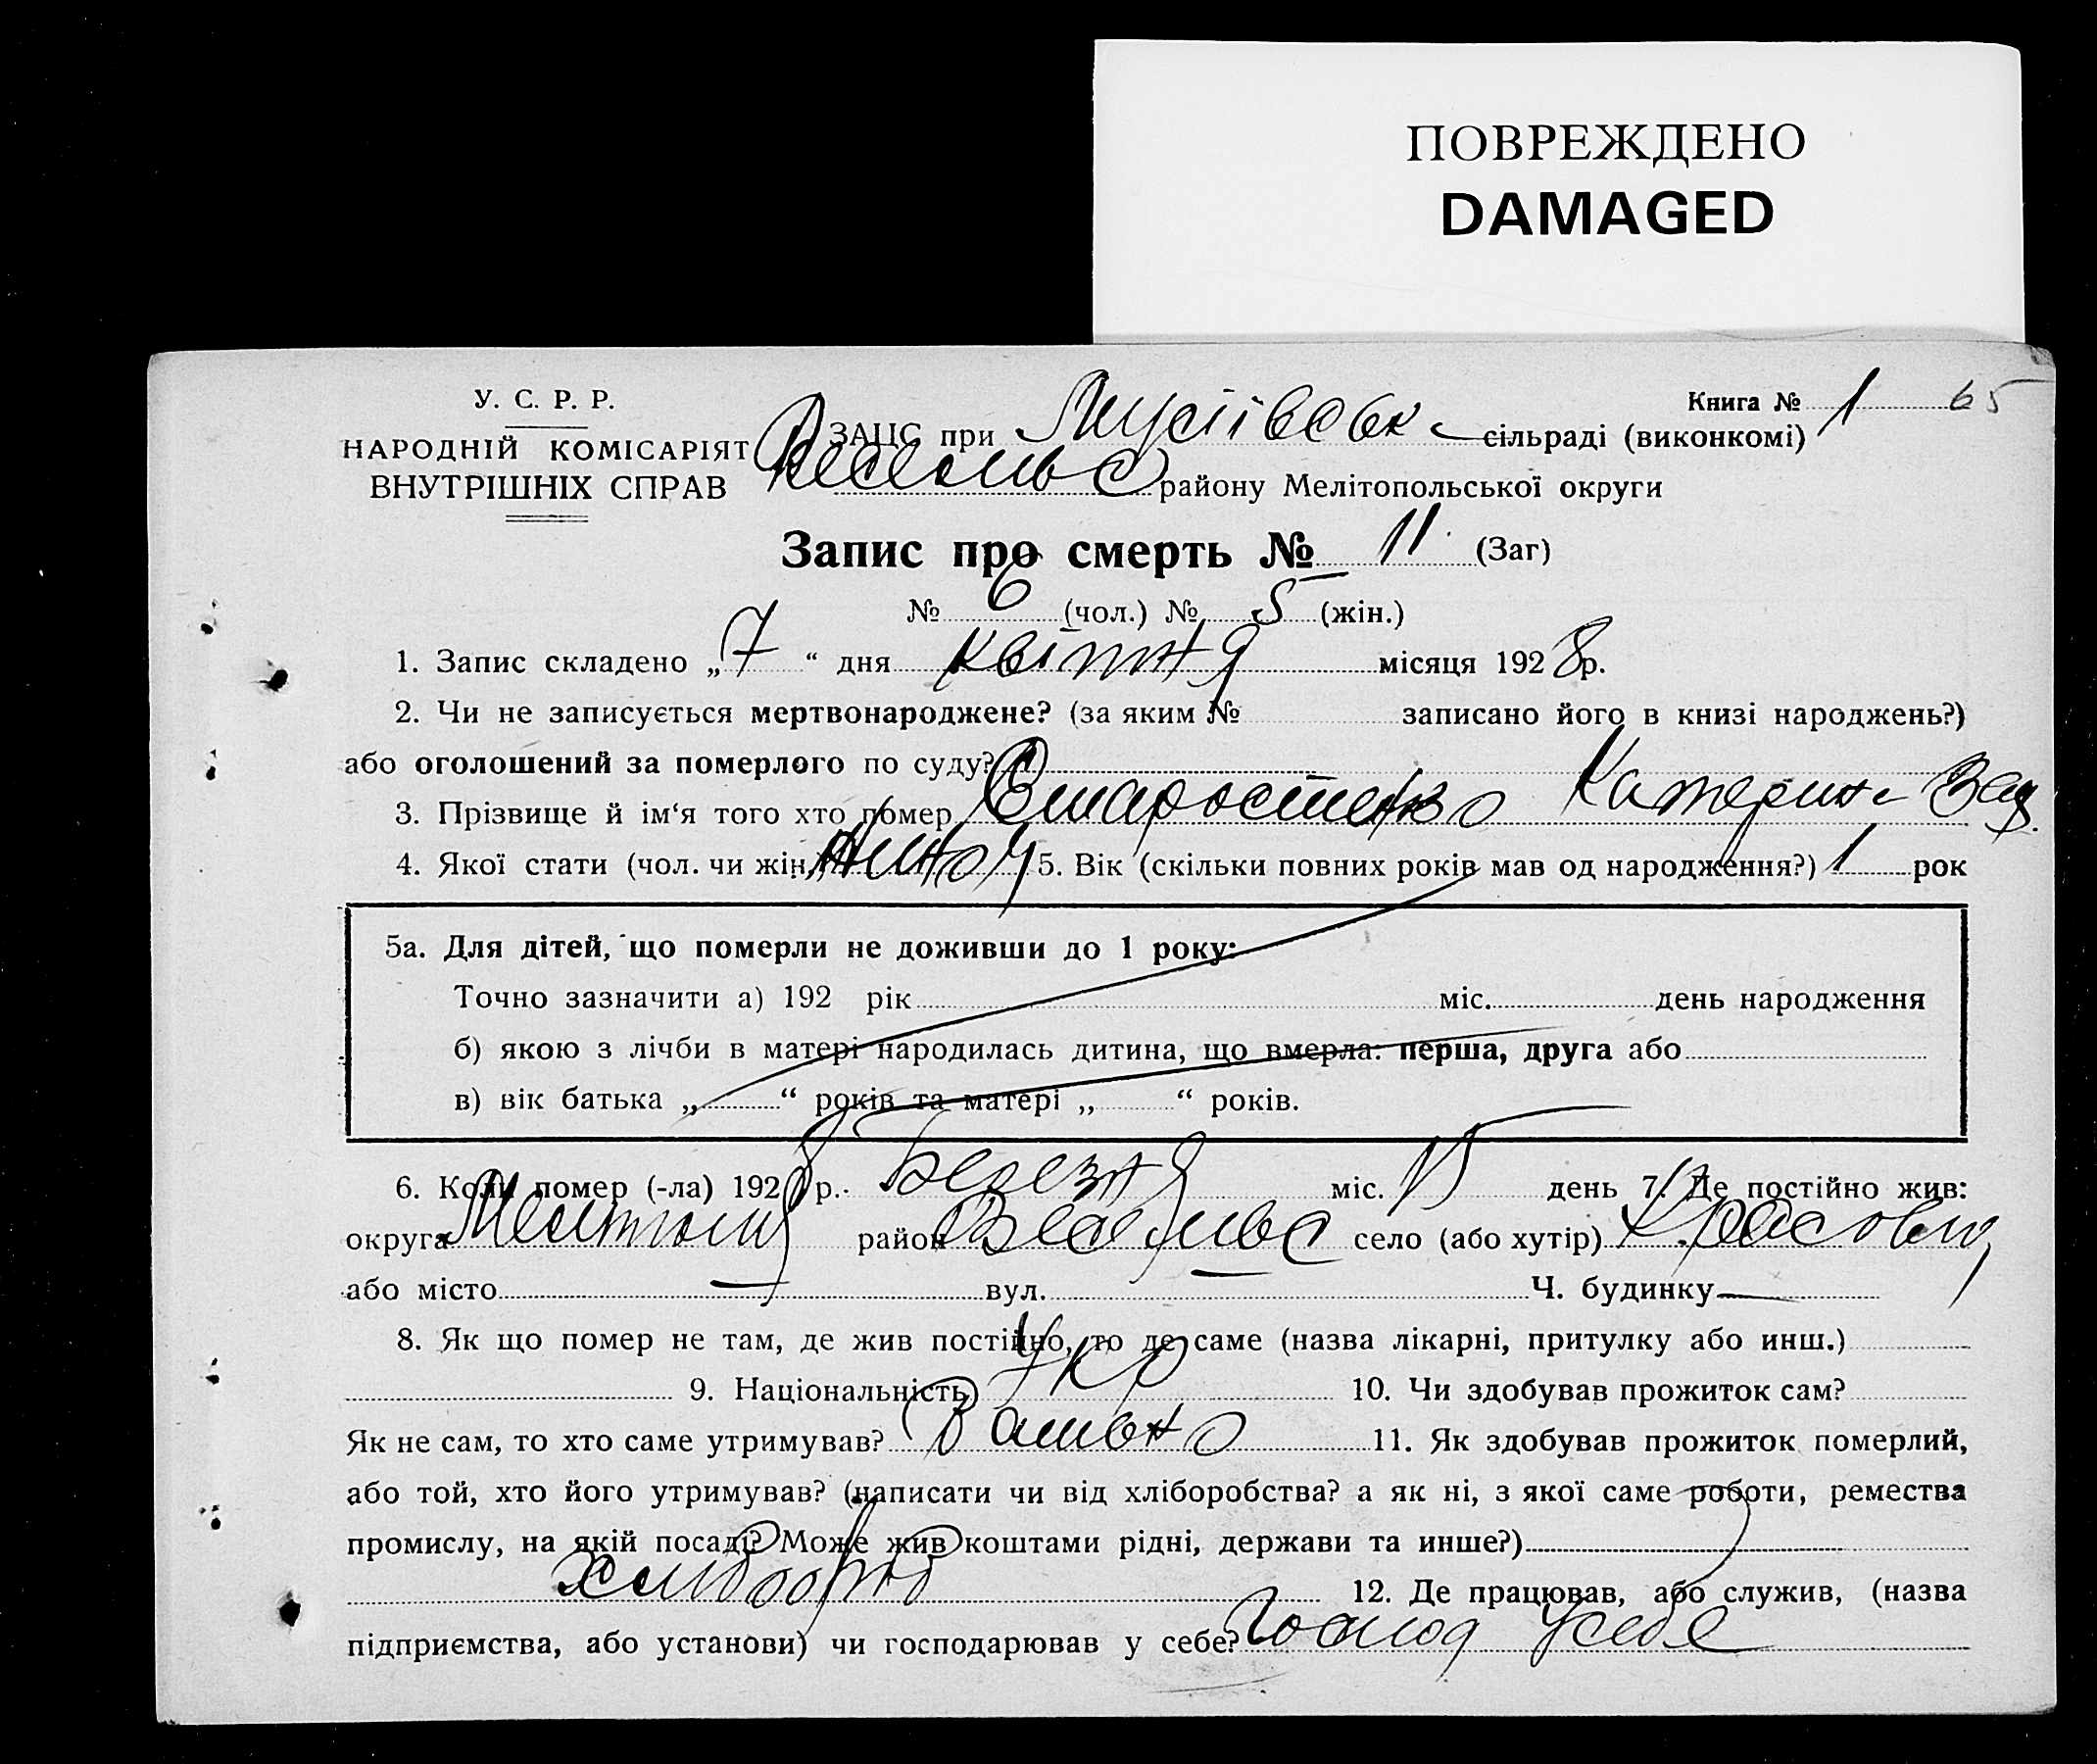 ПОВРЕЖДЕНО
DAMAGED
У. С. Р. Р.
НАРОДНІЙ КОМІСАРІЯТ
ВНУТРІШНІХ СПРАВ
Книга № 1 65
ЗАЦС при Мусіївськ сільраді (виконкомі)
району Мелітопольської округи
Запис про смерть № 11 (Заг)
№ 6 (чол.) № 5 (жін.)
1. Запис складено „7“ дня квітня місяця 1928 р.
2. Чи не записується мертвонароджене? (за яким № записано його в книзі народжень?)
або оголошений за померлого по суду?
3. Прізвище й ім‘я того хто помер Старостенко Катерина
4. Якої стати (чол. чи жін.) 5. Вік (скільки повних років мав од народження?) 1 рок
5а. Для дітей, що померли не доживши до 1 року:
Точно зазначити а) 192 рік міс. день народження
б) якою з лічби в матері народилась дитина, що вмерла: перша, друга або
в) вік батька „ “ років та матері „ “ років.
6. Коли помер (-ла) 1928 р. Березня міс. 15 день 7. Де постійно жив:
округа район село (або хутір)
або місто вул. Ч. будинку
8. Як що помер не там, де жив постійно, то де саме (назва лікарні, притулку або инш.)
9. Національність Укр 10. Чи здобував прожиток сам?
Як не сам, то хто саме утримував? Батько 11. Як здобував прожиток померлий,
або той, хто його утримував? (написати чи від хліборобства? а як ні, з якої саме роботи, ремества
промислу, на якій посаді? Може жив коштами рідні, держави та инше?)
хлібороб 12. Де працював, або служив, (назва
підприємства, або установи) чи господарював у себе? Господ у себе